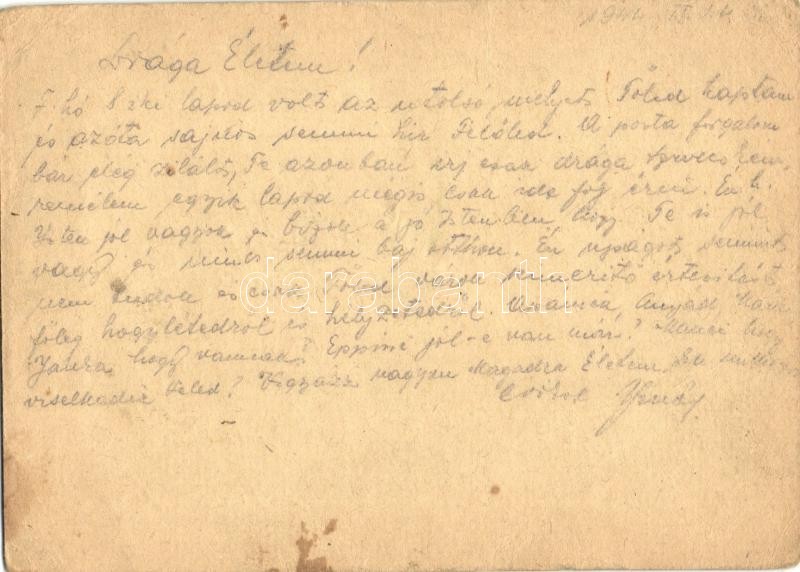 1944
Drága Életem!
F. hó 8 iki lapod volt az utolsó, melyet Tőled kaptam
és azóta sajnos semmi hír Felőled. A posta forgalom
bár elég zilált, Te azonban írj csak drága
remélem egyik lapod mégis csak ide fog érni. Én h.
Isten jól vagyok és bízok a jó Istenben hogy Te is jól
vagy és nincs semmi baj otthon. Én újságot semmit
nem tudok és csak Tőled várok kimerítő értesítést
főleg hogylétedről és helyzetedről. Anyád,
hogy vannak? Eppiné jól-e van már? Manci hogy
viselkedik Veled? Vigyázz nagyon Magadra Életem.
csókol
darabanth